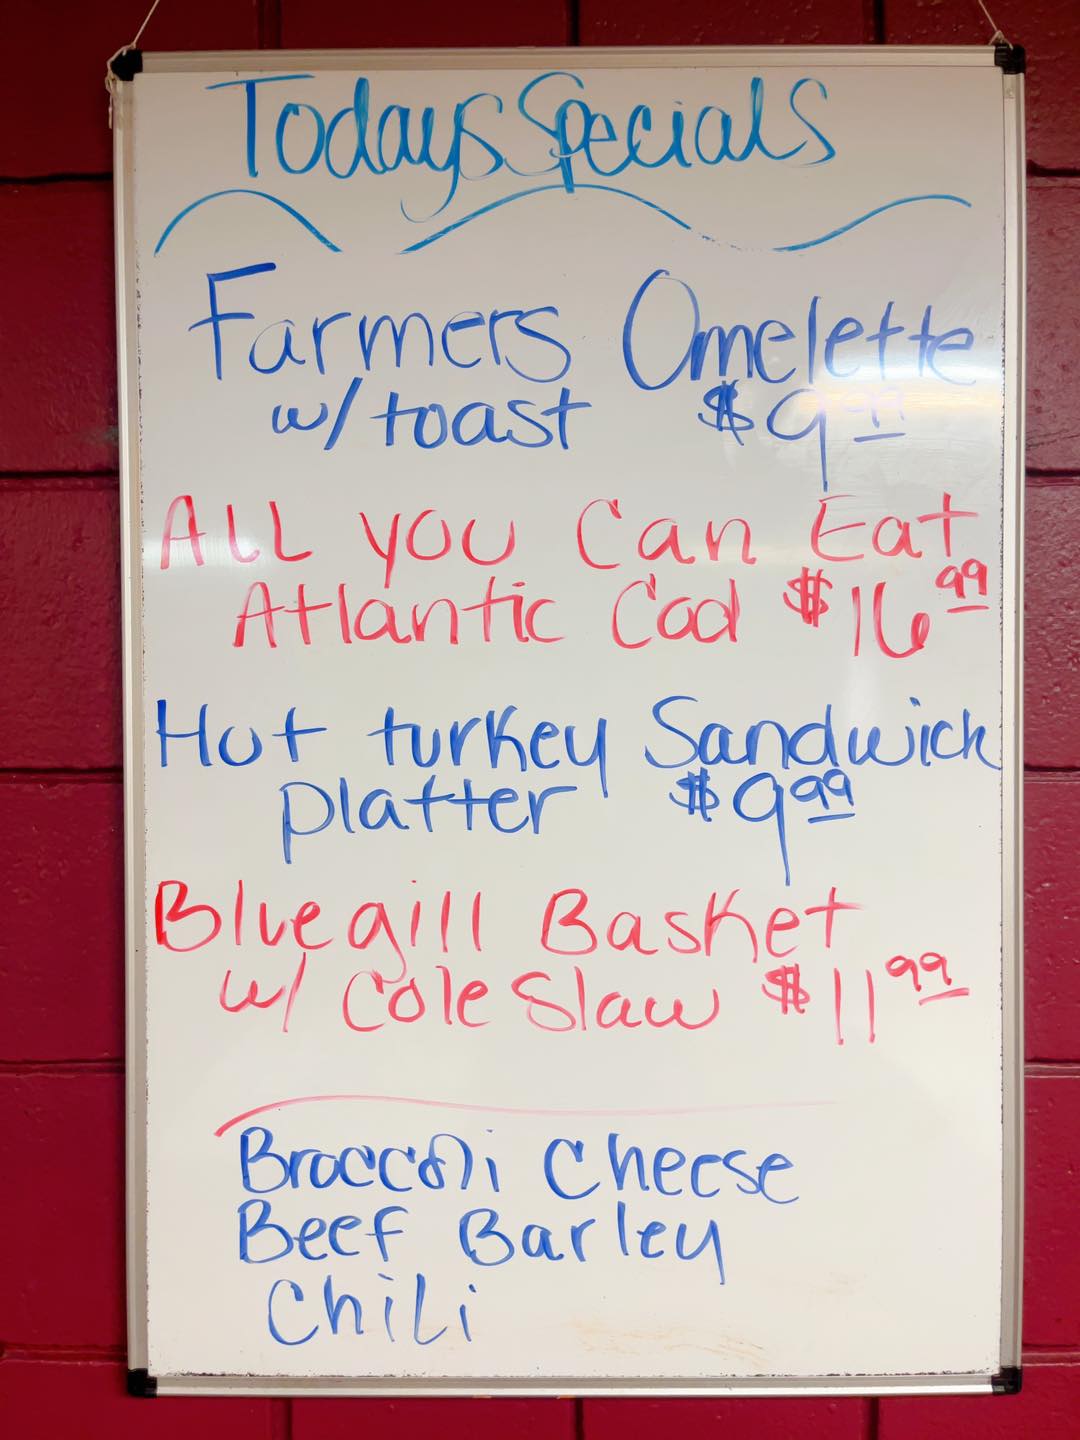 Todays Specials
Farmers Omelette
w/ toast $9.99
ALL you Can Eat
Atlantic Cod $16.99
Hot turkey Sandwich
platter $9.99
Bluegill Basket
w/ Cole Slaw $11.99
Broccoli Cheese
Beef Barley
Chili